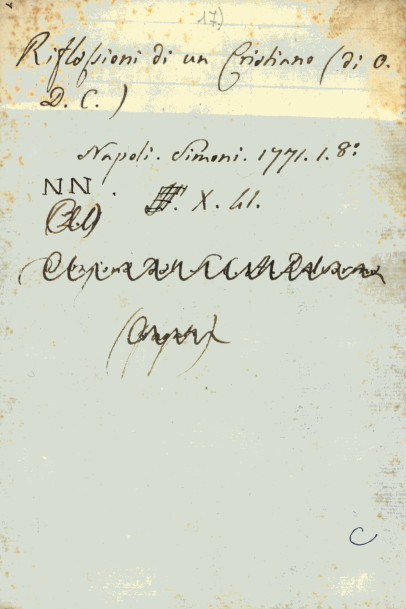 17)
Riflessioni di un Cristiano (di O.
D. C. )
Napoli. Simoni. 1771. 1. 8:
NN . X. 41.
C